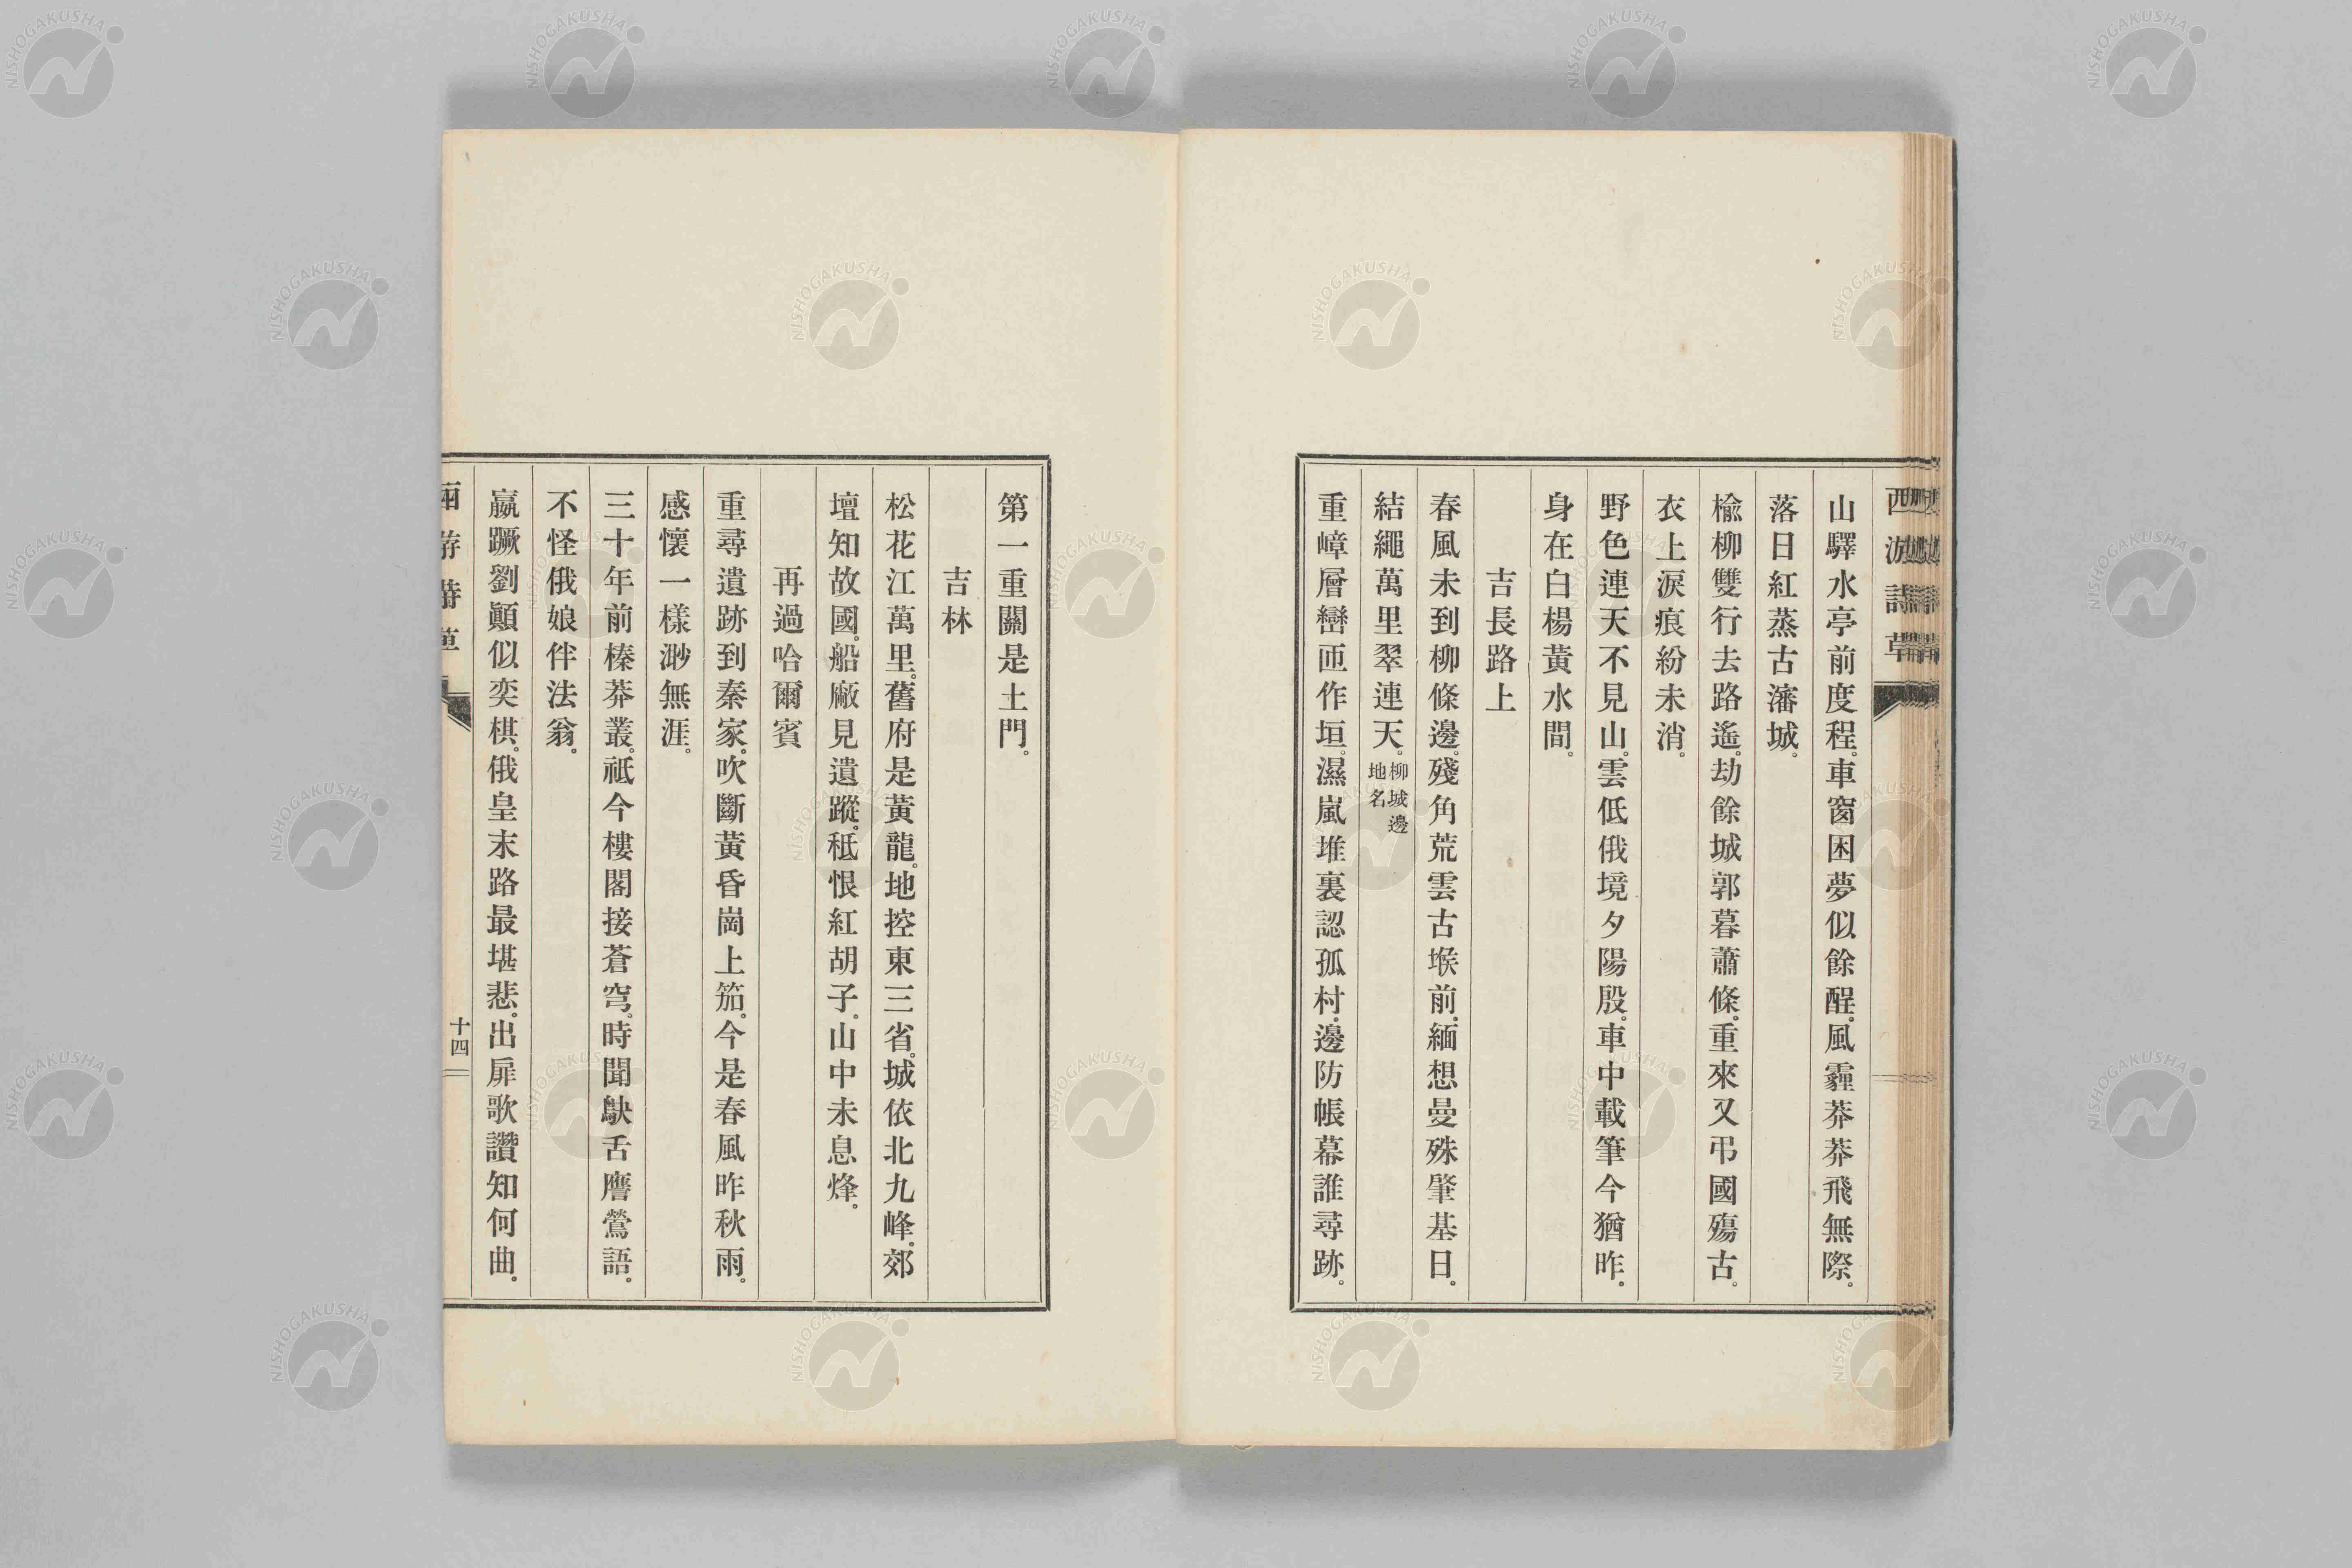 西游詩草
山驛水亭前度程。車窗困夢似餘酲。風霾莽莽飛無際。
落日紅蒸古瀋城。
楡柳雙行去路遙。劫餘城郭暮蕭條。重來又弔國殤古。
衣上淚痕紛未消。
野色連天不見山。雲低俄境夕陽殷。車中載筆今猶昨。
身在白楊黃水間。
吉長路上
春風未到柳條邊。殘角荒雲古堠前。緬想曼殊肇基日。
結繩萬里翠連天。柳城邊地名
重嶂層巒匝作垣。濕嵐堆裏認孤村。邊防帳幕誰尋跡。
第一重關是土門。
吉林
松花江萬里。舊府是黃龍。地控東三省。城依北九峰。郊
壇知故國。船廠見遺蹤。秪恨紅胡子。山中未息烽。
再過哈爾賓
重尋遺跡到秦家。吹斷黃昏崗上笳。今是春風昨秋雨。
感懷一樣渺無涯。
三十年前榛莽叢。祗今樓閣接蒼穹。時聞鴃舌譍鶯語。
不怪俄娘伴法翁。
嬴蹶劉顚似奕棋。俄皇末路最堪悲。出扉歌讚知何曲。
十四
NISHOGAKUSHA